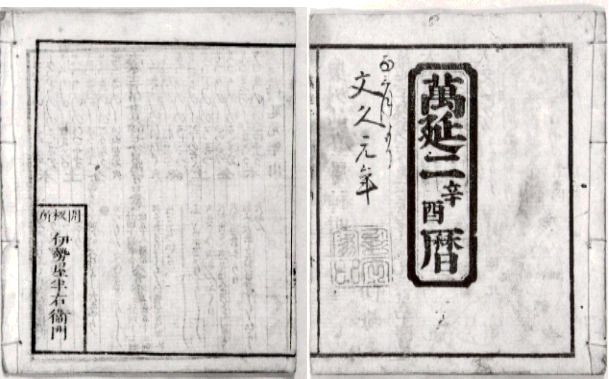 萬延二辛酉暦
文久元年
開板所
伊勢屋半右衛門